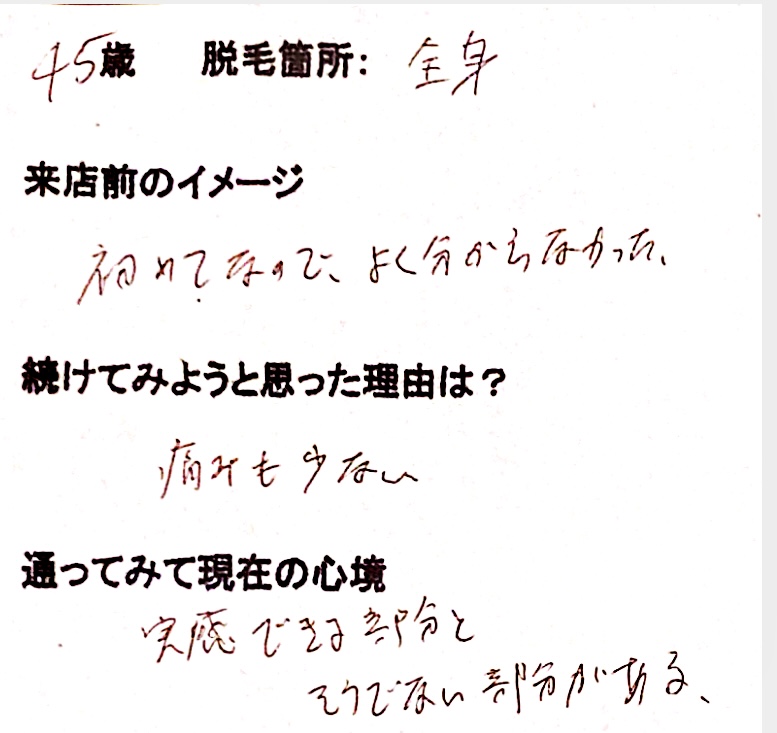 45歳 脱毛箇所: 全身
来店前のイメージ
初めてなので、よく分からなかった、
続けてみようと思った理由は？
痛みも少ない
通ってみて現在の心境
実感できる部分と
そうでない部分がある、